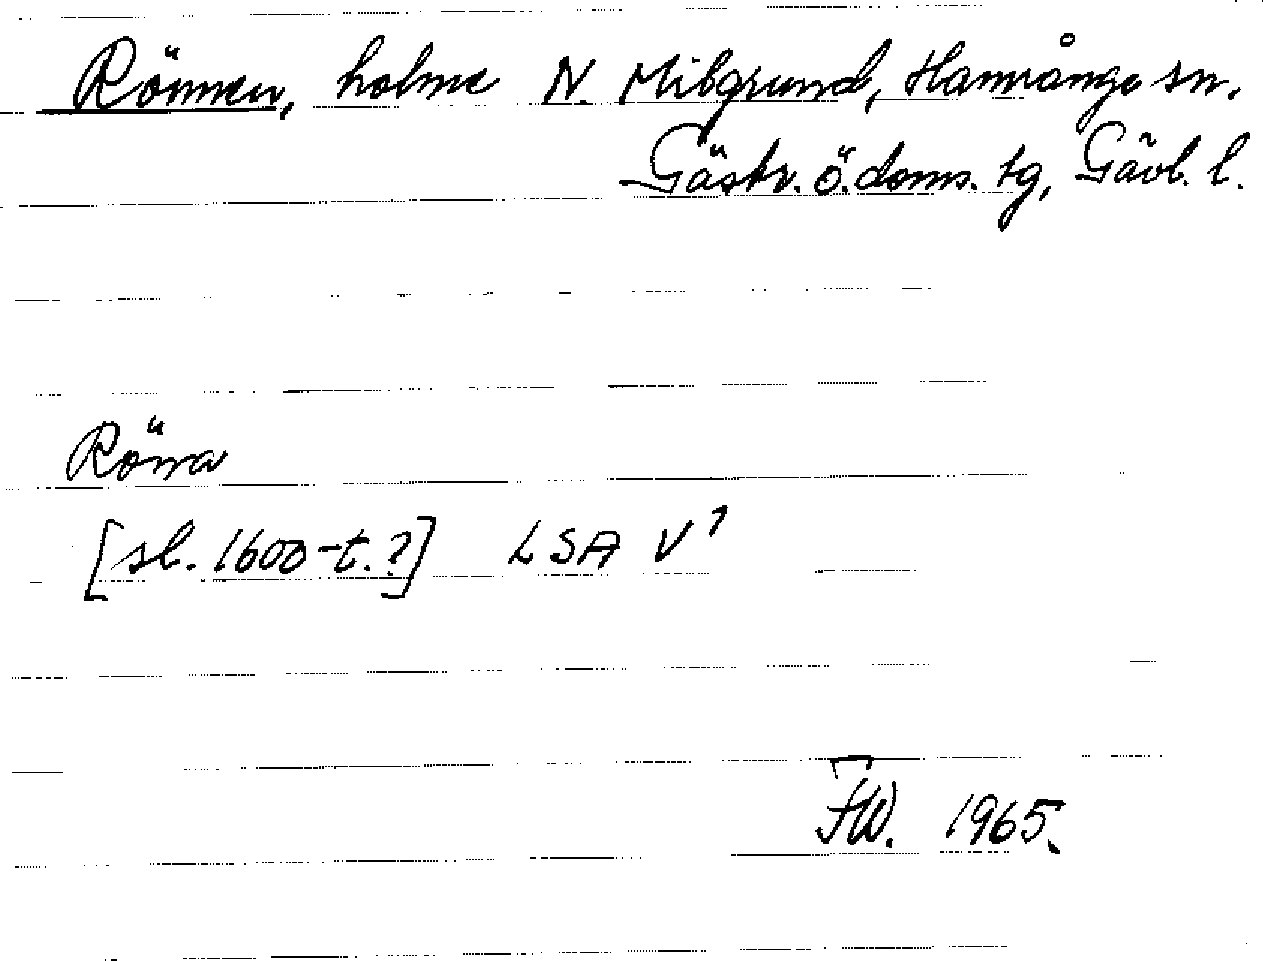 Rönnen, holme N. Milsgrund, Hamrånge sn.
Gästr. ö. doms. tg, Gävl. l.
Röna
[sl. 1600-t.?] LSA V¹
FW. 1965.